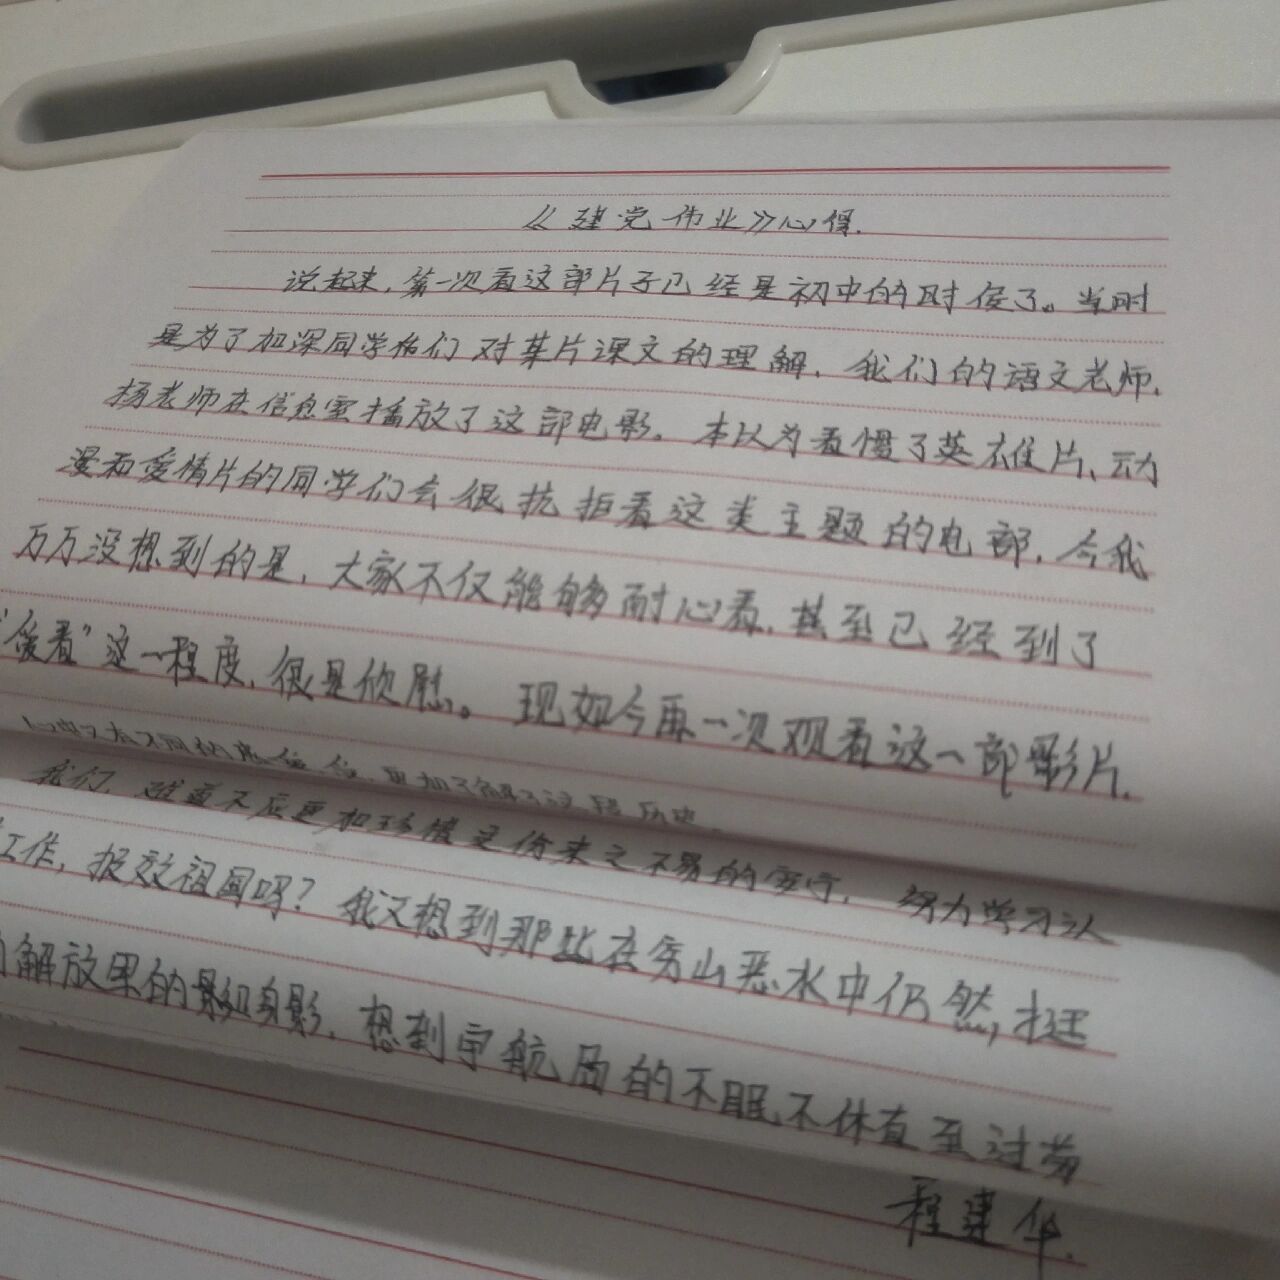 《建党伟业》心得.
说起来,第一次看这部片子已经是初中的时侯了。当时
是为了加深同学们对某片课文的理解,我们的语文老师,
杨老师在信息室播放了这部电影。本以为看惯了英雄片、动
漫和爱情片的同学们会很抗拒看这类主题的电部,令我
万万没想到的是,大家不仅能够耐心看,甚至已经到了
"爱看"这一程度,很是欣慰。现如今再一次观看这一部影片,
更加了解了这段历史,
我们,难道不应更加珍惜这份来之不易的安宁,努力学习认
工作,报效祖国吗?我又想到那些在穷山恶水中仍然,挺
解放军的身影,想到宇航局的不眠不休直至过劳
程建华.